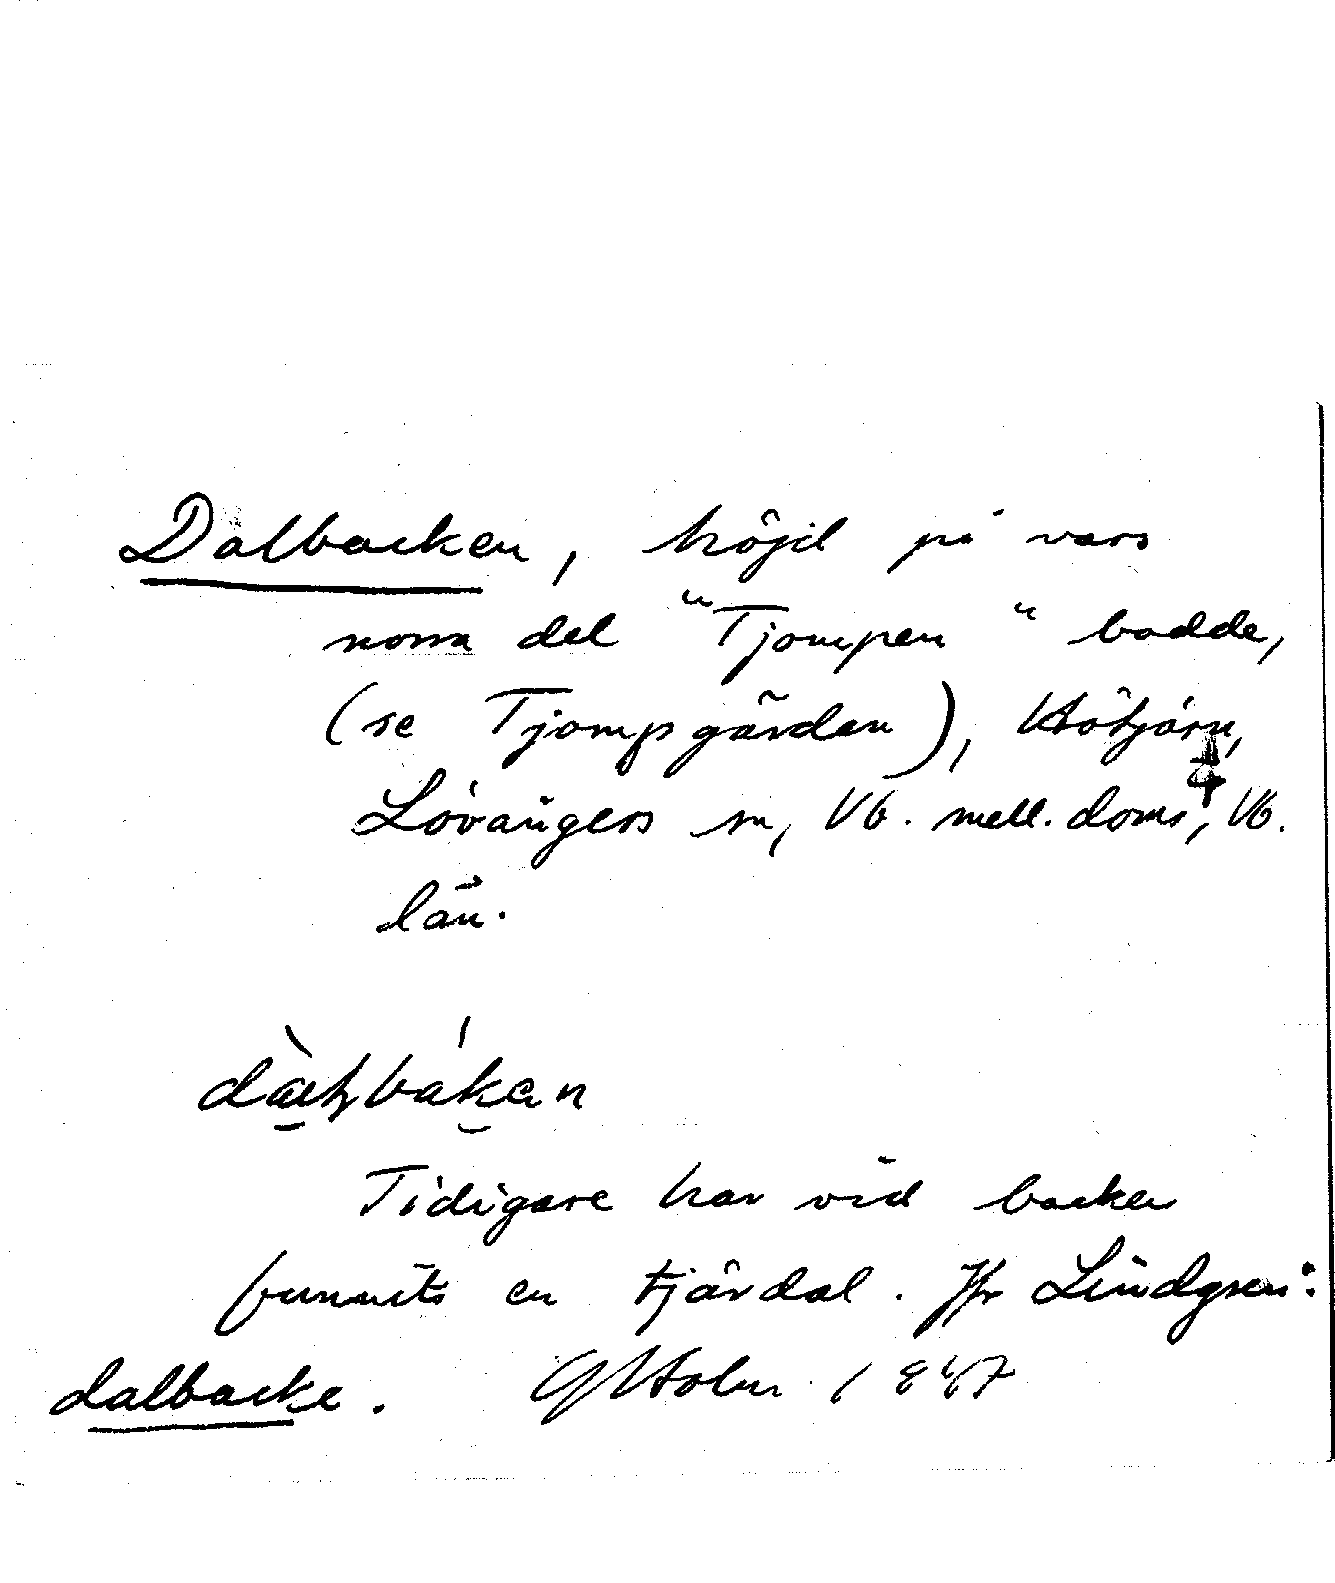 Dalbacken, höjd på vars
norra del "Tjompen" bodde,
(se Tjompgården), Hötjärn,
Lövångers sn, Vb. mell. doms, Vb.
län.
Tidigare har vid backen
funnits en tjärdal. Jfr Lindgren:
dalbacke. GHolm 1947